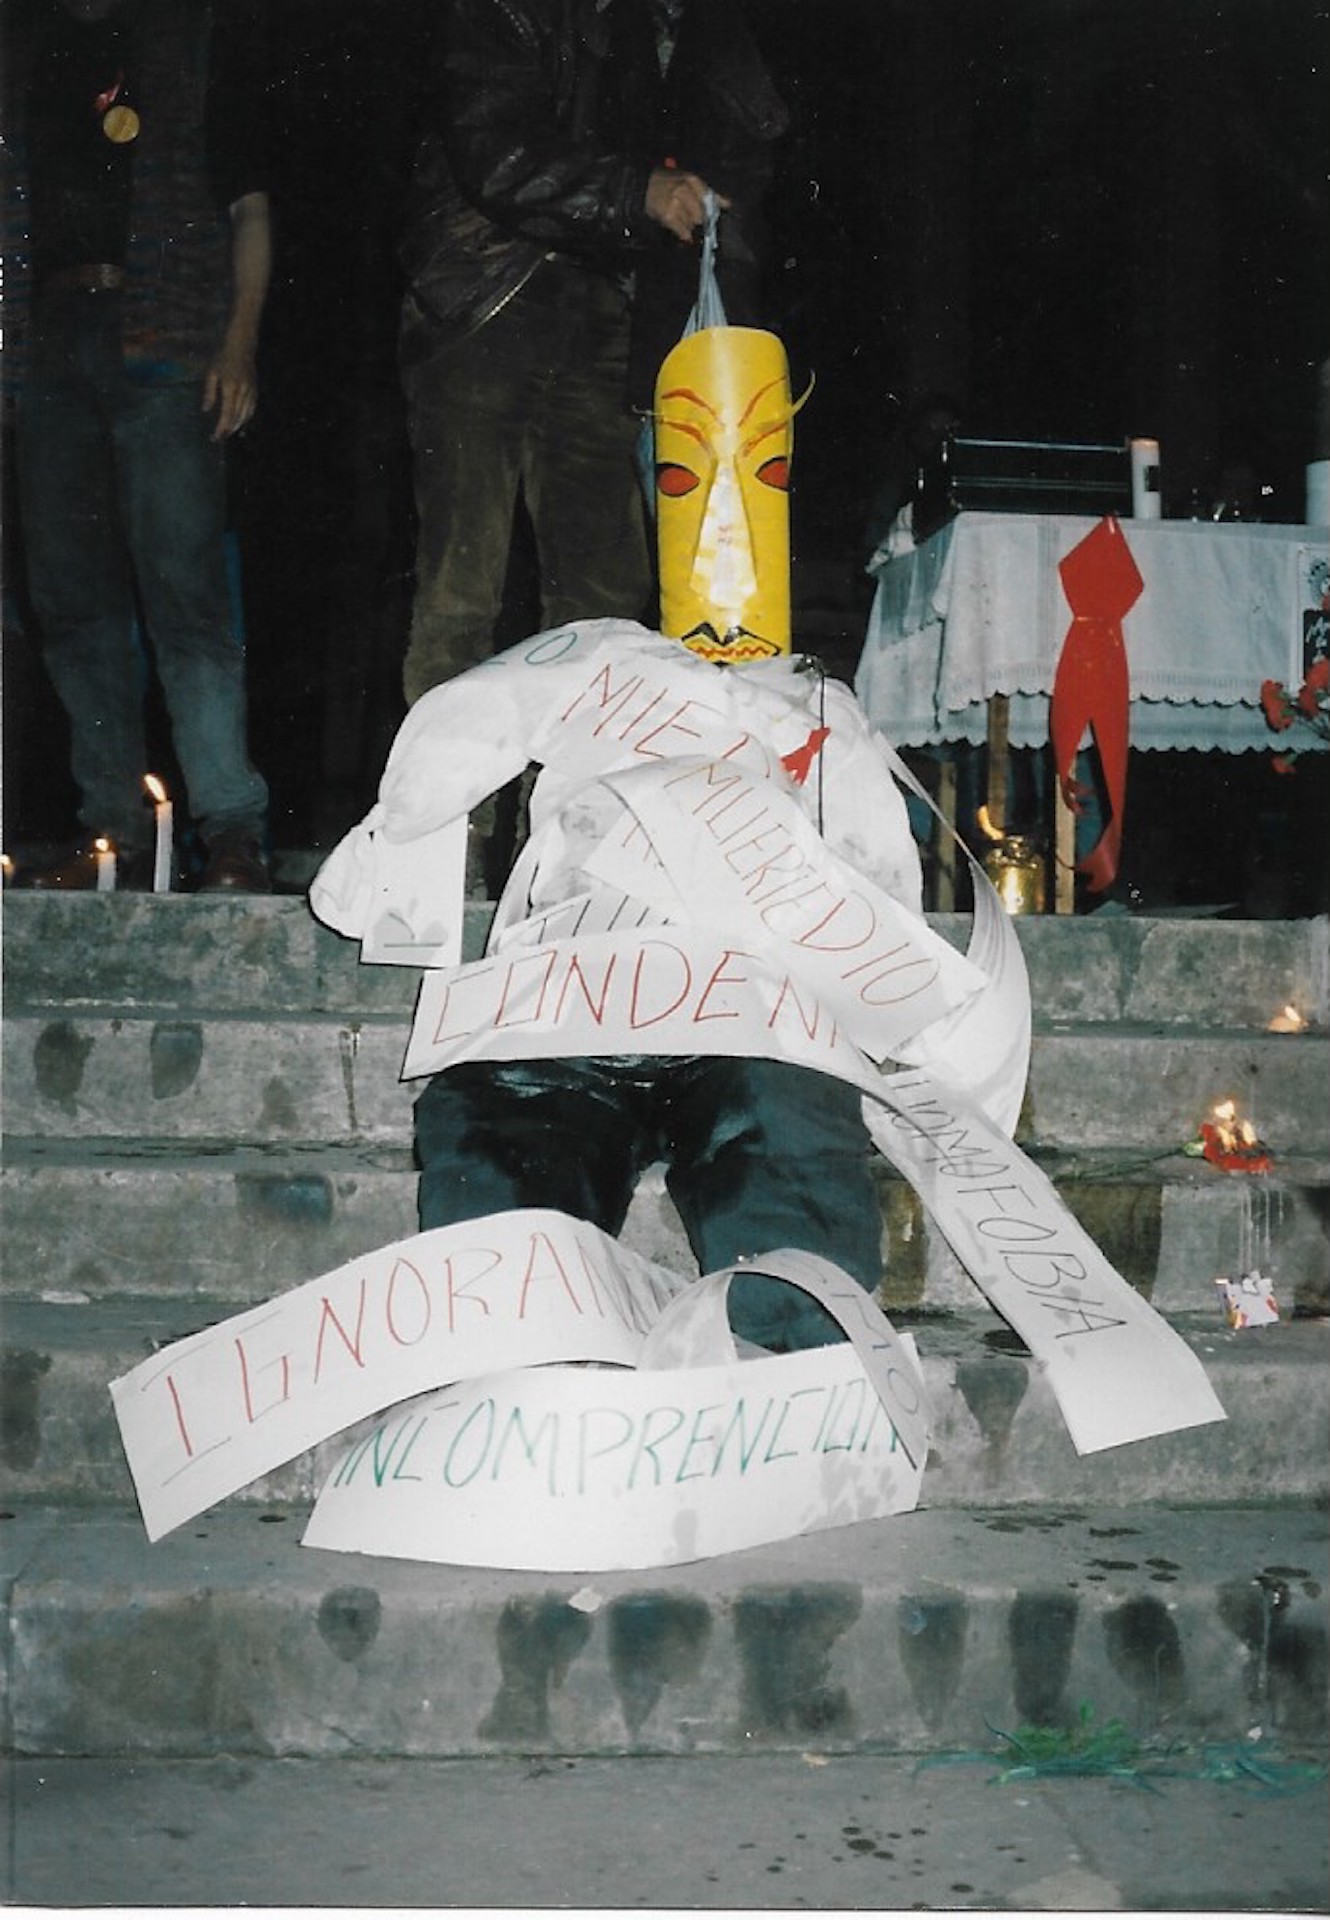 MIED
MUERTE
ODIO
CONDEN
HOMOFOBIA
IGNORAN
INCOMPRENCION